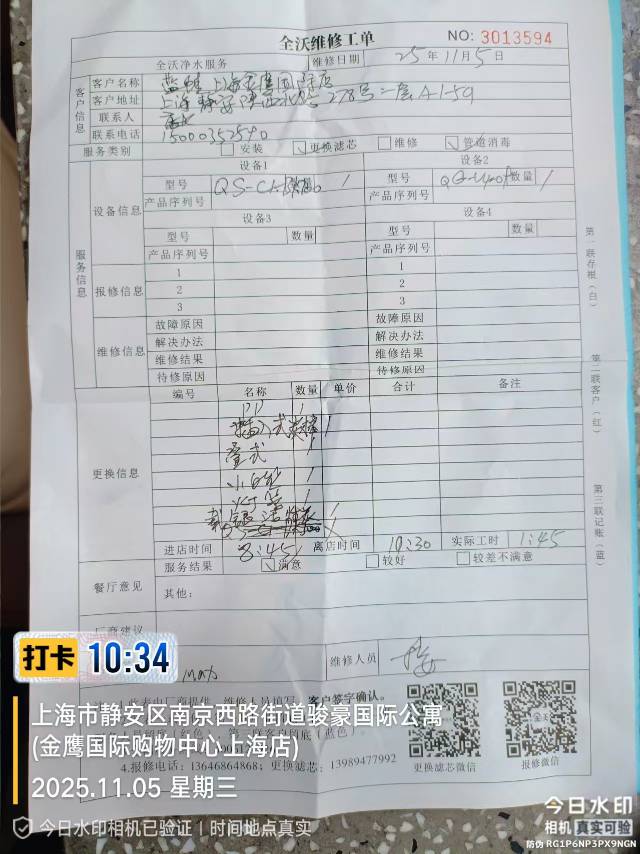 全沃维修工单
NO: 3013594
全沃净水服务 维修日期 25年11月5日
客户信息
客户名称 蓝蛙 上海金鹰国际店
客户地址 上海静安 278号二层A1-59
联系人
联系电话 15000352540
服务类别 安装 更换滤芯 维修 管道消毒
服务信息
设备信息
设备1 设备2
型号 数量 1 型号 数量 1
产品序列号 产品序列号
设备3 设备4
型号 数量 型号 数量
产品序列号 产品序列号
报修信息
1 1
2 2
3 3
维修信息
故障原因 故障原因
解决办法 解决办法
维修结果 维修结果
待修原因 待修原因
更换信息
编号 名称 数量 单价 合计 备注
PP 1
插入式 1
叠式 1
1
灯管 1
进店时间 8:45 离店时间 10:30 实际工时 1:45
服务结果 满意 较好 较差不满意
餐厅意见 其他:
厂商建议
维修人员
客户签字确认。
4.报修电话:13646864868;更换滤芯:13989477992
更换滤芯微信 报修微信
第一联存根(白)
第二联客户(红)
第三联记账(蓝)
打卡 10:34
上海市静安区南京西路街道骏豪国际公寓
(金鹰国际购物中心上海店)
2025.11.05 星期三
今日水印相机已验证 | 时间地点真实
今日水印
相机 真实可验
防伪 RG1P6NP3PX9NGN